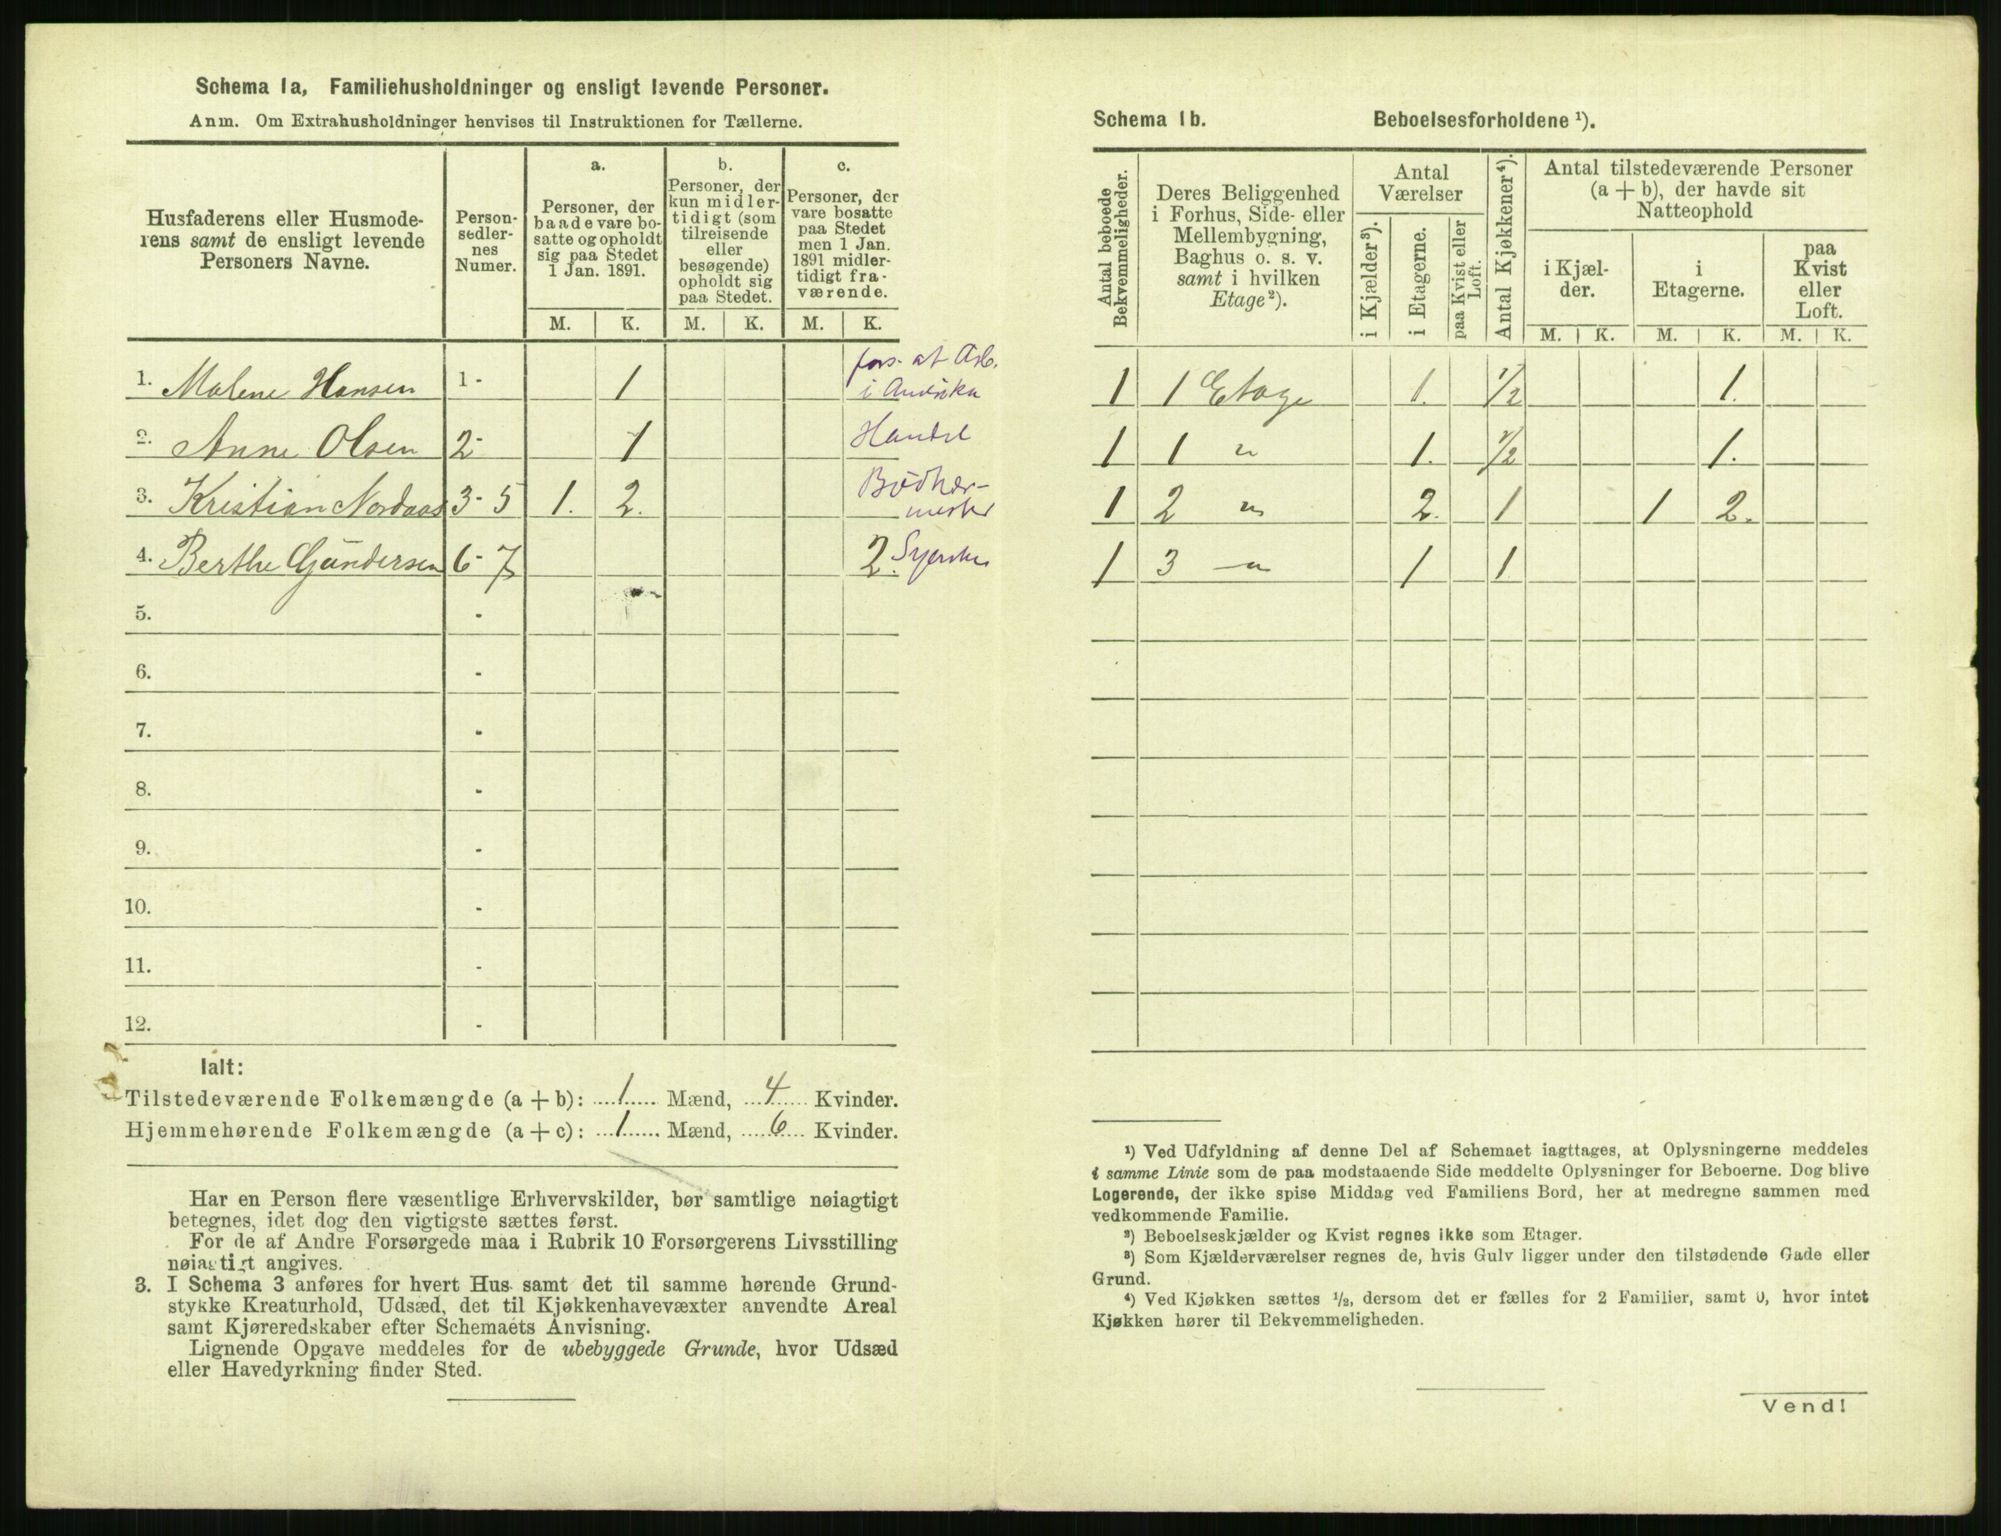 Schema 1a, Familiehusholdninger og ensligt levende Personer.
Anm. Om Extrahusholdninger henvises til Instruktionen for Tællerne.
Husfaderens eller Husmode-
rens samt de ensligt levende
Personers Navne.
Person-
sedler-
nes
Numer.
a.
Personer, der
baade vare bo-
satte og opholdt
sig paa Stedet
1 Jan. 1891.
b.
Personer, der
kun midler-
tidigt (som
tilreisende
eller
besøgende)
opholdt sig
paa Stedet.
c.
Personer, der
vare bosatte
paa Stedet
men 1 Jan.
1891 midler-
tidigt fra-
værende.
M. K. M. K. M. K.
1. Malene Hansen 1 - 1 fors. at Arb.
i Amerika
2. Anne Olsen 2 - 1 Handel
3. Kristian Nordaas 3 - 5 1. 2. Bødker-
mester
4. Berthe Gundersen 6 - 7 2. Syerske
5. -
6. -
7. -
8. -
9. -
10. -
11. -
12. -
Ialt:
Tilstedeværende Folkemængde (a + b): 1 Mænd, 4 Kvinder.
Hjemmehørende Folkemængde (a + c): 1 Mænd, 6 Kvinder.
Har en Person flere væsentlige Erhvervskilder, bør samtlige nøiagtigt
betegnes, idet dog den vigtigste sættes først.
For de af Andre Forsørgede maa i Rubrik 10 Forsørgerens Livsstilling
nøiagtigt angives.
3. I Schema 3 anføres for hvert Hus samt det til samme hørende Grund-
stykke Kreaturhold, Udsæd, det til Kjøkkenhavevæxter anvendte Areal
samt Kjøreredskaber efter Schemaets Anvisning.
Lignende Opgave meddeles for de ubebyggede Grunde, hvor Udsæd
eller Havedyrkning finder Sted.
Schema 1b. Beboelsesforholdene ¹).
Antal beboede
Bekvemmeligheder.
Deres Beliggenhed
i Forhus, Side- eller
Mellembygning,
Baghus o. s. v.
samt i hvilken
Etage ²).
Antal
Værelser
i Kjælder ³).
i Etagerne.
paa Kvist eller
Loft.
Antal Kjøkkener ⁴).
Antal tilstedeværende Personer
(a + b), der havde sit
Natteophold
i Kjæl-
der.
i
Etagerne.
paa
Kvist
eller
Loft.
M. K. M. K. M. K.
1 1 Etage 1. 1/2 1.
1 1 " 1. 1/2 1.
1 2 " 2. 1 1 2.
1 3 " 1 1
¹) Ved Udfyldning af denne Del af Schemaet iagttages, at Oplysningerne meddeles
i samme Linie som de paa modstaaende Side meddelte Oplysninger for Beboerne. Dog blive
Logerende, der ikke spise Middag ved Familiens Bord, her at medregne sammen med
vedkommende Familie.
²) Beboelseskjælder og Kvist regnes ikke som Etager.
³) Som Kjælderværelser regnes de, hvis Gulv ligger under den tilstødende Gade eller
Grund.
⁴) Ved Kjøkken sættes ½, dersom det er fælles for 2 Familier, samt 0, hvor intet
Kjøkken hører til Bekvemmeligheden.
Vend!